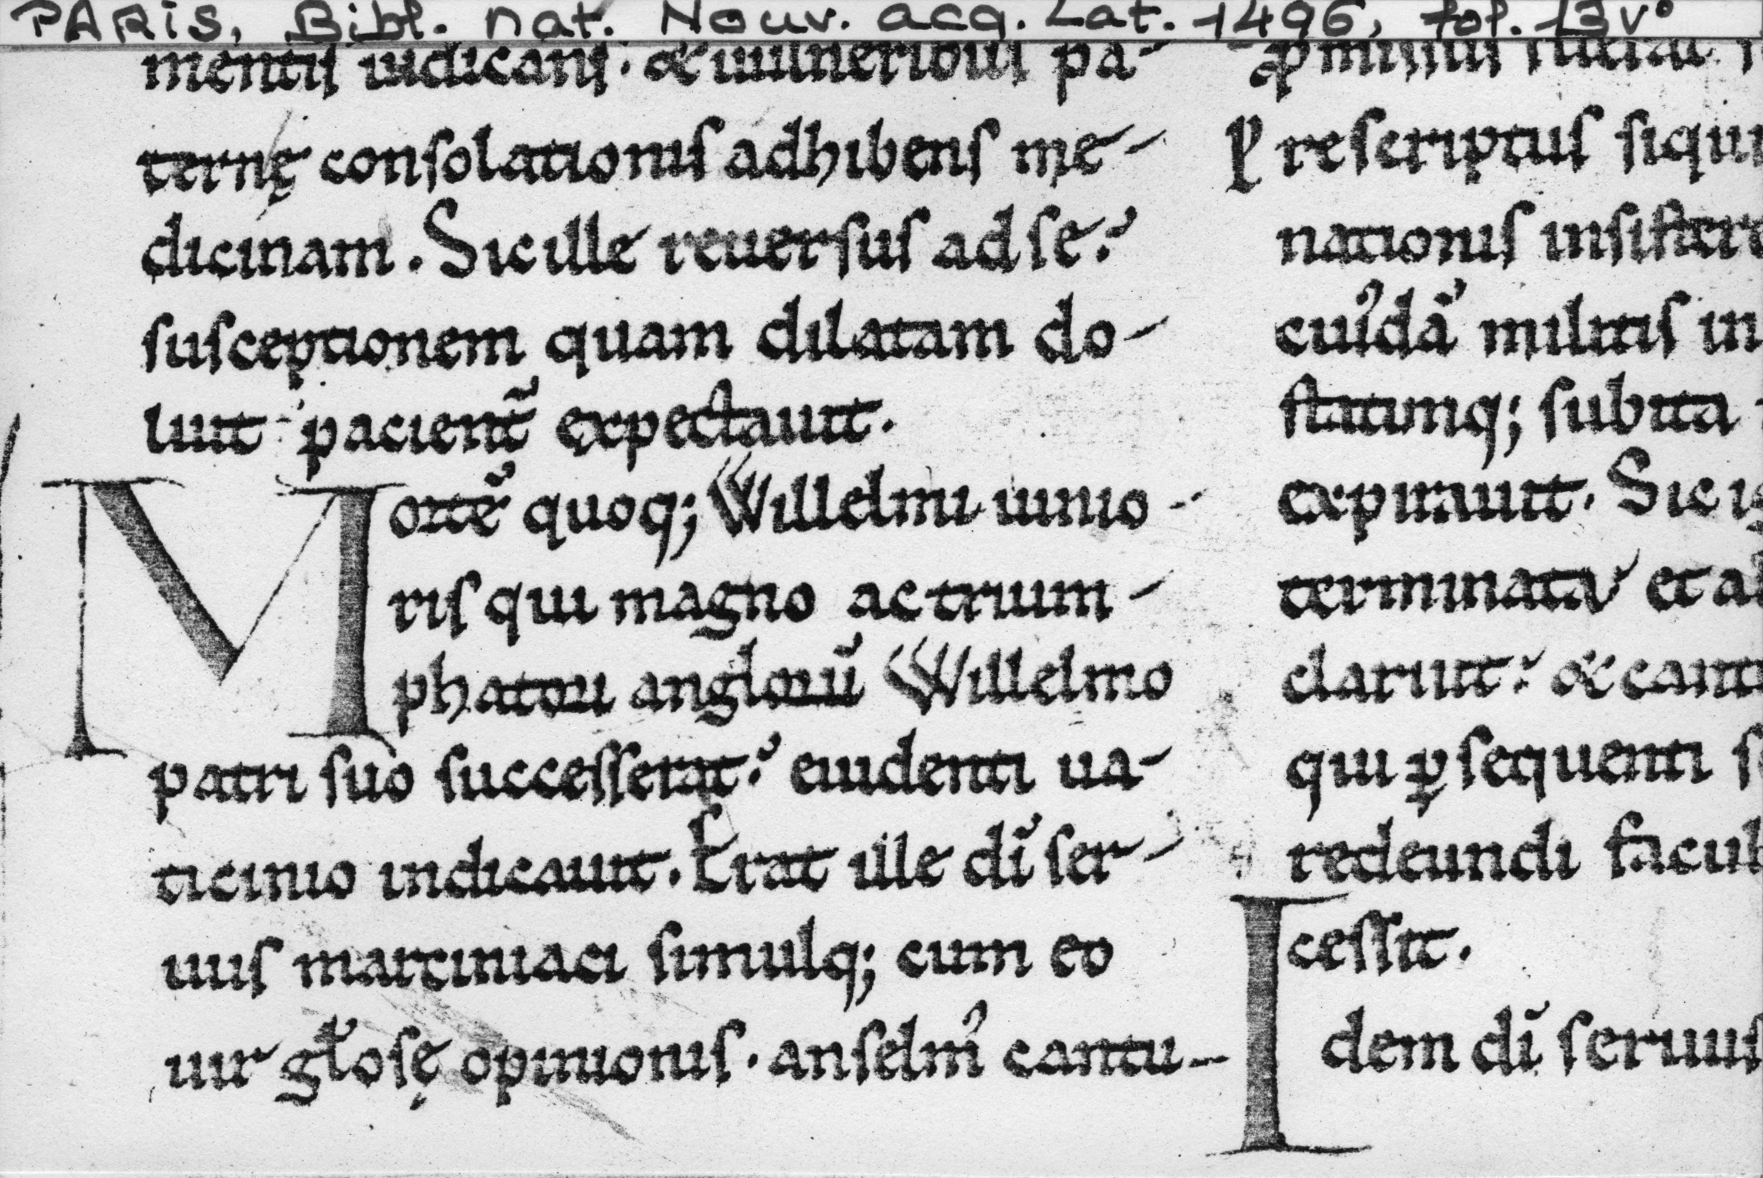 PARIS, Bibl. nat. Nouv. acq. Lat. 1496, fol. 13v°
mentis iudicans. & uulneribus pa-
ternę consolationis adhibens me-
dicinam. Sic ille reuersus ad se.
susceptionem quam dilatam do-
luit pacient̃ expectauit.
Morte᷒ quoq; Willelmi iunio-
ris qui magno ac trium-
phatori anglorũ Willelmo
patri suo successerat. euidenti ua-
ticinio indicauit. Erat ille dĩ ser-
uus marciniaci simulq; cum eo
uir gl̃osę opinionis. anselm᷒ cantu-
p̃rescriptus siqui
nationis insistere
cui᷒dã militis in
statimq; subita
expirauit. Sic
terminata et
claruit. & cant
qui ꝑsequenti
redeundi facul
cessit.
Idem dĩ seruus